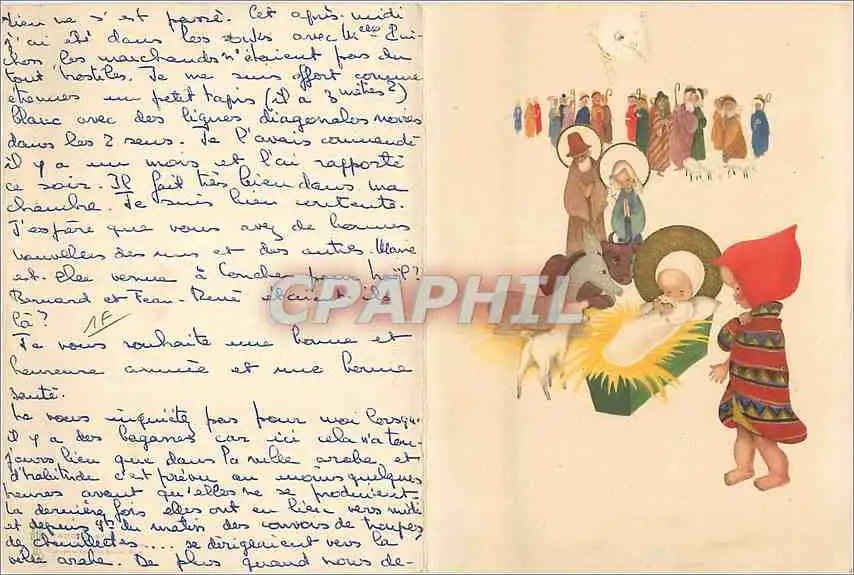 rien ne s'est passé. Cet après-midi
j'ai été dans les souks avec Melle Pui-
les marchands n'étaient pas du
tout hostiles. Je me suis offert comme
étrennes un petit tapis (il a 3 mètres 2)
blanc avec des lignes diagonales noires
dans les 2 sens. Je l'avais commandé
il y a un mois et l'ai rapporté
ce soir. Il fait très bien dans ma
chambre. Je suis bien contente.
J'espère que vous avez de bonnes
nouvelles des uns et des autres. Marie
est-elle venue à Conches pour Noël?
Bernard et Jean-René étaient-ils
là?
1F
Je vous souhaite une bonne et
heureuse année et une bonne
santé.
Ne vous inquiétez pas pour moi lorsqu'
il y a des bagarres car ici cela n'a tou-
jours lieu que dans la ville arabe et
d'habitude c'est prévu au moins quelques
heures avant qu'elles ne se produisent.
La dernière fois elles ont eu lieu vers midi
et depuis du matin des convois de troupes
de chenillettes.... se dirigeaient vers la
ville arabe. De plus quand nous de-
CPAPHIL